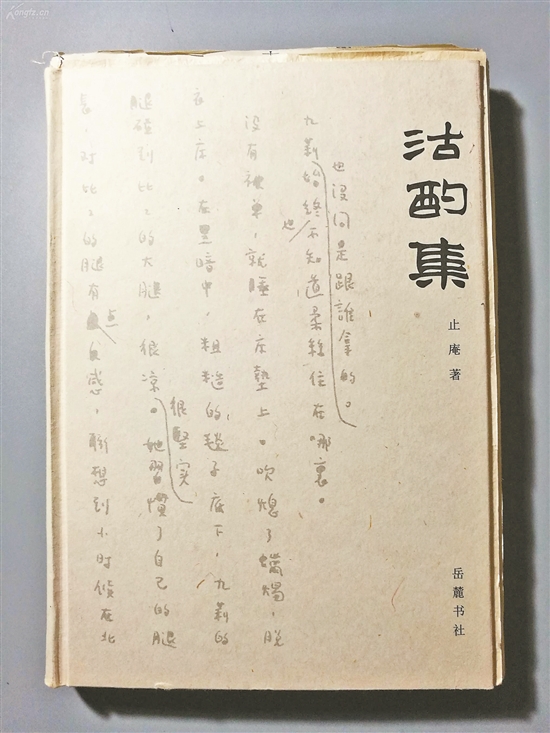 沽酌集
止庵著
岳麓书社
也没问是跟誰拿的。
九莉始終不知道柔絲住在哪裏。
也
没有被单,就睡在床墊上。吹熄了蠟燭,脱
衣上床。在黑暗中,粗糙的毯子底下,九莉的
很堅实
腿碰到比比的大腿,很凉。她習慣了自己的腿
長,对比比的腿有反感,聯想到小时候在北
点